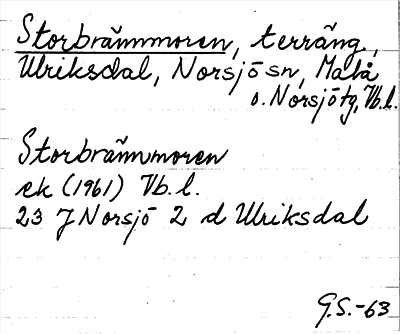 Storbrännmoren, terräng.,
Ulriksdal, Norsjö sn, Malå
o. Norsjö tg, Vb.l.
Storbrännmoren
ek (1961) Vb.l.
23 J Norsjö 2 d Ulriksdal
G.S.-63